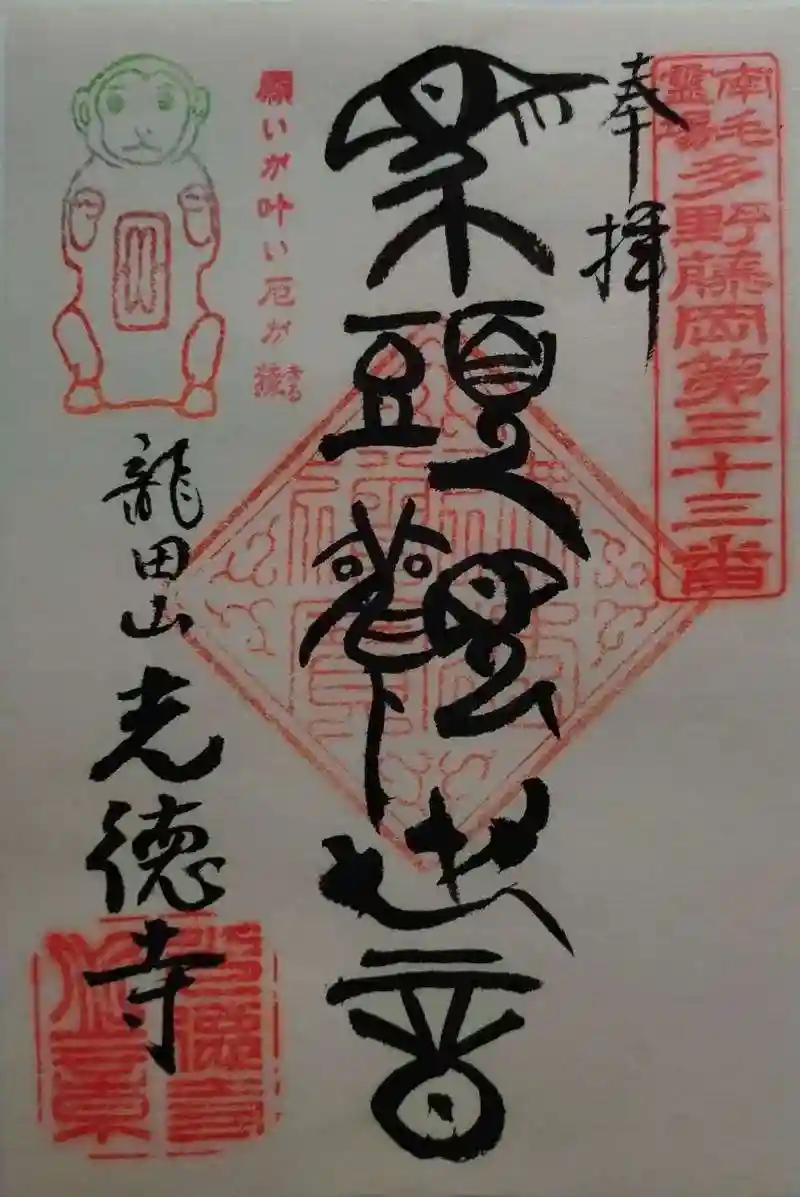 南毛
靈場
多野藤岡第三十三番
奉拝
頭観世音
佛法僧寶
願いが叶い厄が猿
さる
龍田山
光徳寺